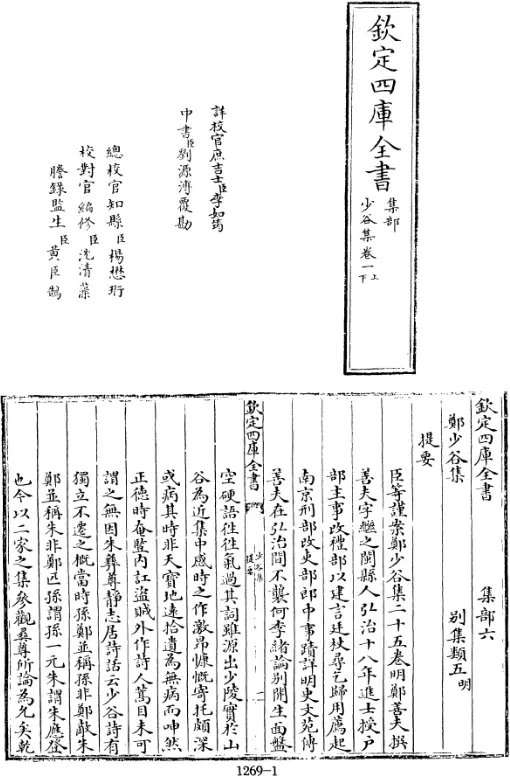 欽定四庫全書
集部
少谷集卷一
上
下
詳校官庶吉士臣李如筠
中書臣劉源溥覆勘
總校官知縣臣楊懋珩
校對官編修臣沈清藻
謄錄監生臣黃臣鵠
欽定四庫全書
集部六
鄭少谷集
别集類五明
提要
臣等謹案鄭少谷集二十五卷明鄭善夫撰
善夫字繼之閩縣人弘治十八年進士授户
部主事改禮部以建言廷杖尋乞歸用薦起
南京刑部改吏部郎中事蹟詳明史文苑傳
善夫在弘治間不襲何李緒論别開生面盤
欽定四庫全書
少谷集
提要
一
空硬語往往氣過其詞雖源出少陵實於山
谷為近集中感時之作激昂慷慨寄托頗深
或病其時非天寶地逺拾遺為無病而呻然
正德時奄豎内訌盜賊外作詩人蒿目未可
謂之無因朱彞尊静志居詩話云少谷詩有
獨立不遷之概當時孫鄭並稱孫非鄭敵朱
鄭並稱朱非鄭匹孫謂孫一元朱謂朱應登
也今以二家之集參觀彞尊所論為允矣乾
1269-1